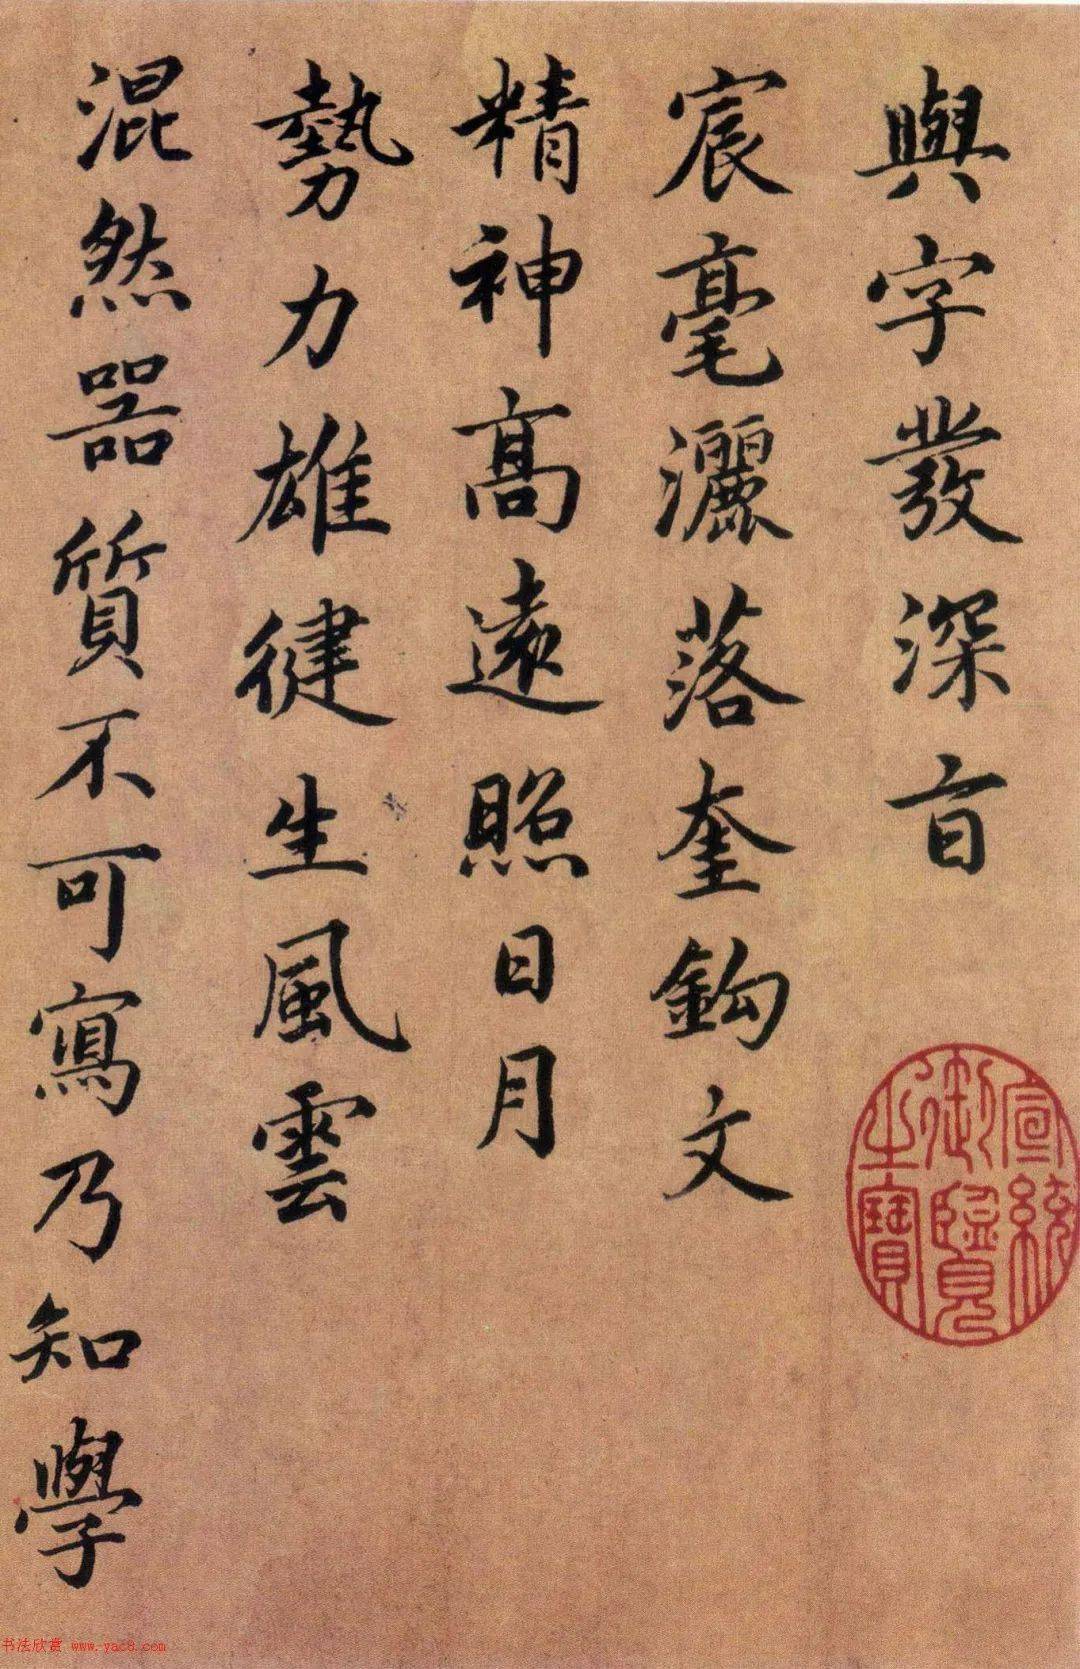 與字發深㫖
宸毫灑落奎鈎文
精神高遠照日月
勢力雄徤生風雲
混然器質不可寫乃知學
宣統御覽之寶
书法欣赏 www.yac8.com